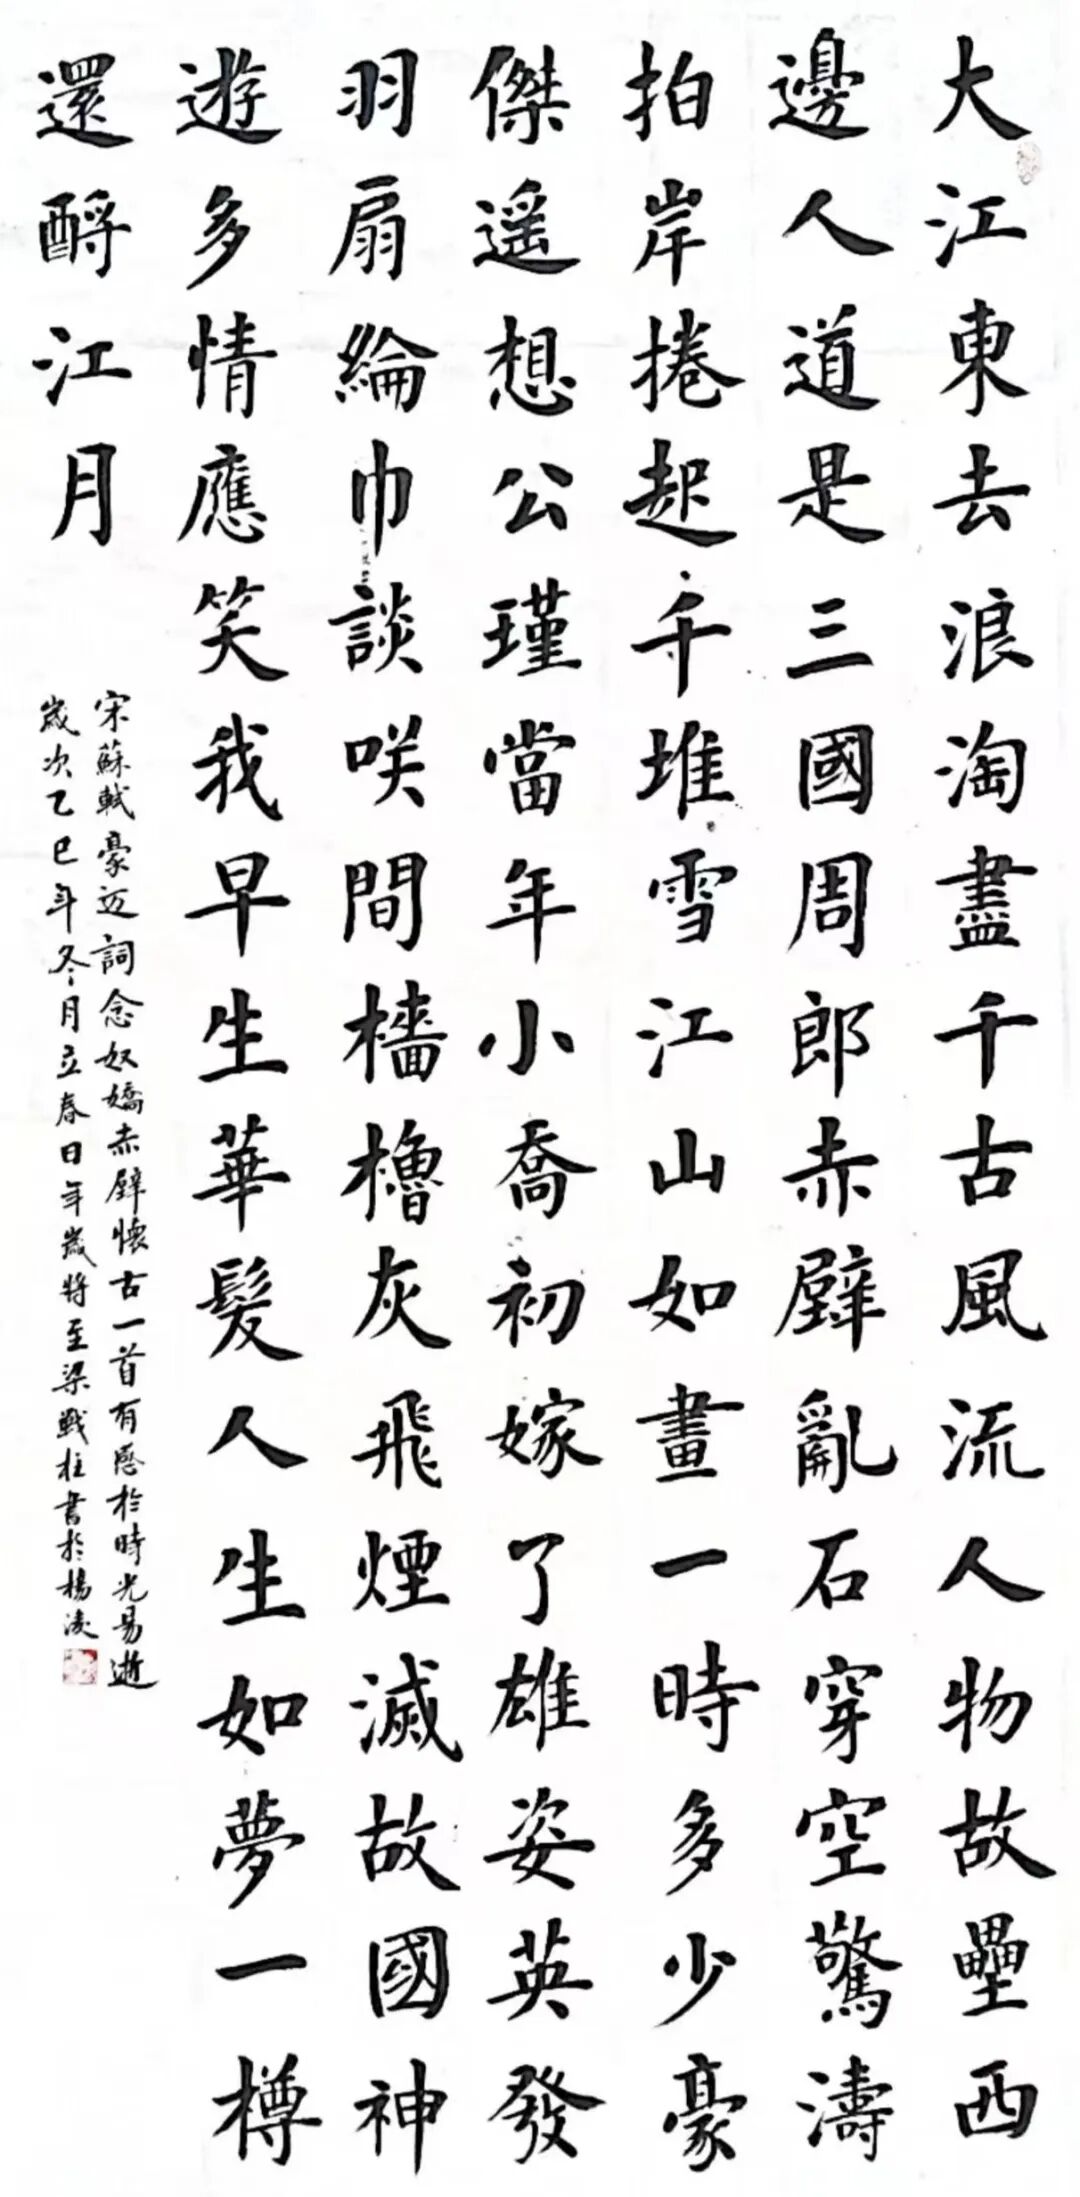 大江東去浪淘盡千古風流人物故壘西
邊人道是三國周郎赤壁亂石穿空驚濤
拍岸捲起千堆雪江山如畫一時多少豪
傑遥想公瑾當年小喬初嫁了雄姿英發
羽扇綸巾談咲間檣櫓灰飛煙滅故國神
遊多情應笑我早生華髮人生如夢一樽
還酹江月
宋蘇軾豪迈詞念奴嬌赤壁懷古一首有感於時光易逝
歲次乙巳年冬月立春日年歲將至梁戰柱書於楊凌